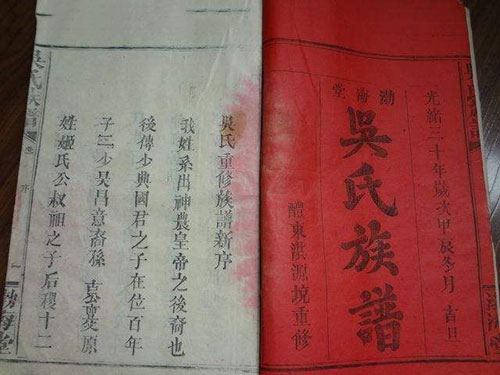 光緒三十年歲次甲辰冬月吉日
渤海堂
吳氏族譜
醴東洪源境重修
吳氏重修族譜新序
我姓系出神農皇帝之後裔也
後傳少典國君之子在位百年
子二少吳昌意裔孫
原
姓姬氏公叔祖之子后稷十二
吳氏族譜
序
一
渤海堂